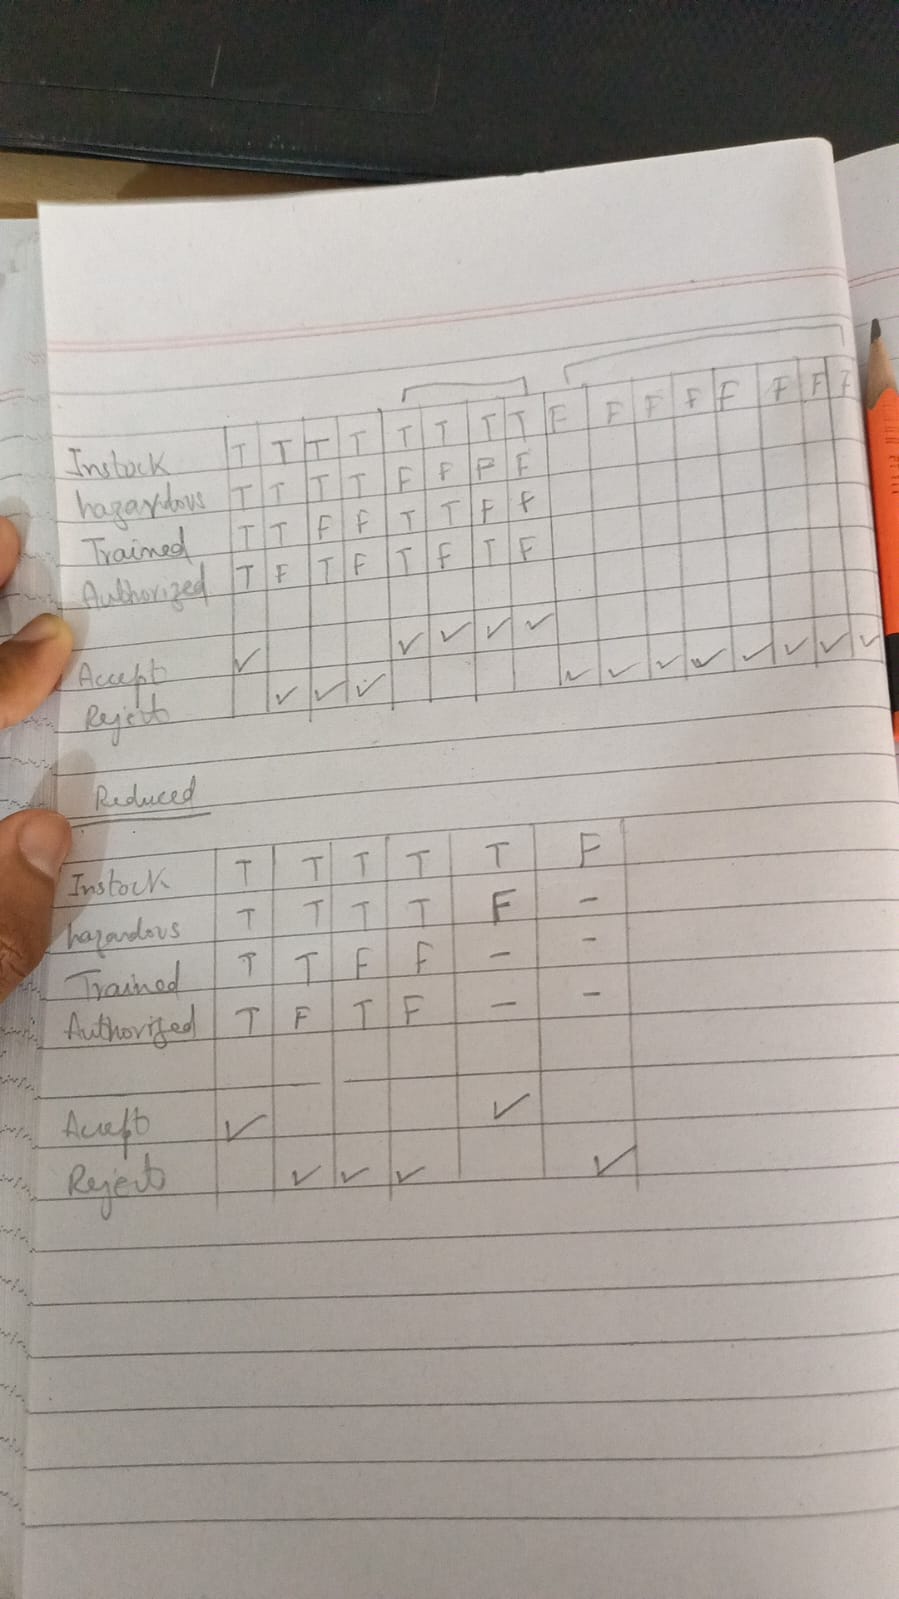 Instock T T T T T T T T F F F F F F F F
hazardous T T T T F F F F
Trained T T F F T T F F
Authorized T F T F T F T F
Accept ✓ ✓ ✓ ✓ ✓
Reject ✓ ✓ ✓ ✓ ✓ ✓ ✓ ✓ ✓ ✓ ✓
Reduced
Instock T T T T T F
hazardous T T T T F -
Trained T T F F - -
Authorized T F T F - -
Accept ✓ ✓
Reject ✓ ✓ ✓ ✓